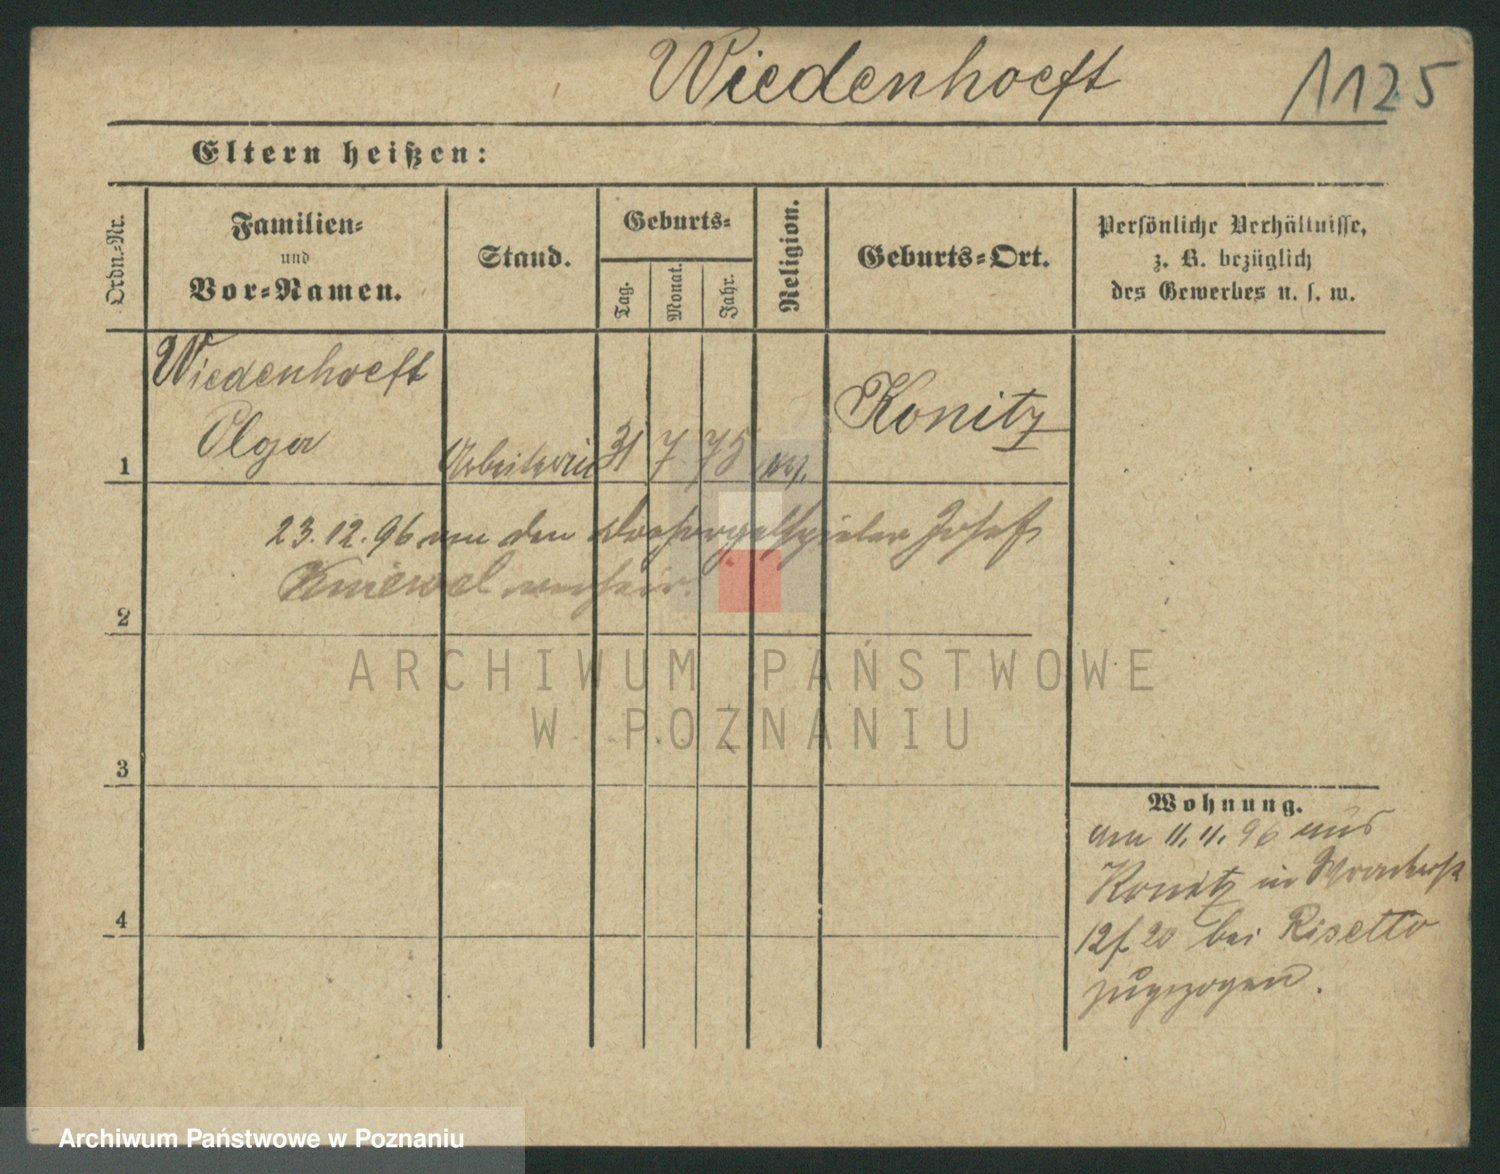 Wiedenhoeft
1125
Eltern heißen:
Ordn.-Nr.
Familien-
und
Vor-Namen.
Stand.
Geburts-
Tag.
Monat.
Jahr.
Religion.
Geburts-Ort.
Persönliche Verhältnisse,
z. B. bezüglich
des Gewerbes u. s. w.
Wiedenhoeft
Olga
1
Arbeiterin
31
7
75
ev.
Konitz
23.12.96 an den Drehorgelspieler Josef
Kniewel verheir.
2
ARCHIWUM PAŃSTWOWE
W POZNANIU
3
Wohnung.
am 11.11.96 aus
Konitz in
12 20 bei Risetto
zugezogen.
4
Archiwum Państwowe w Poznaniu